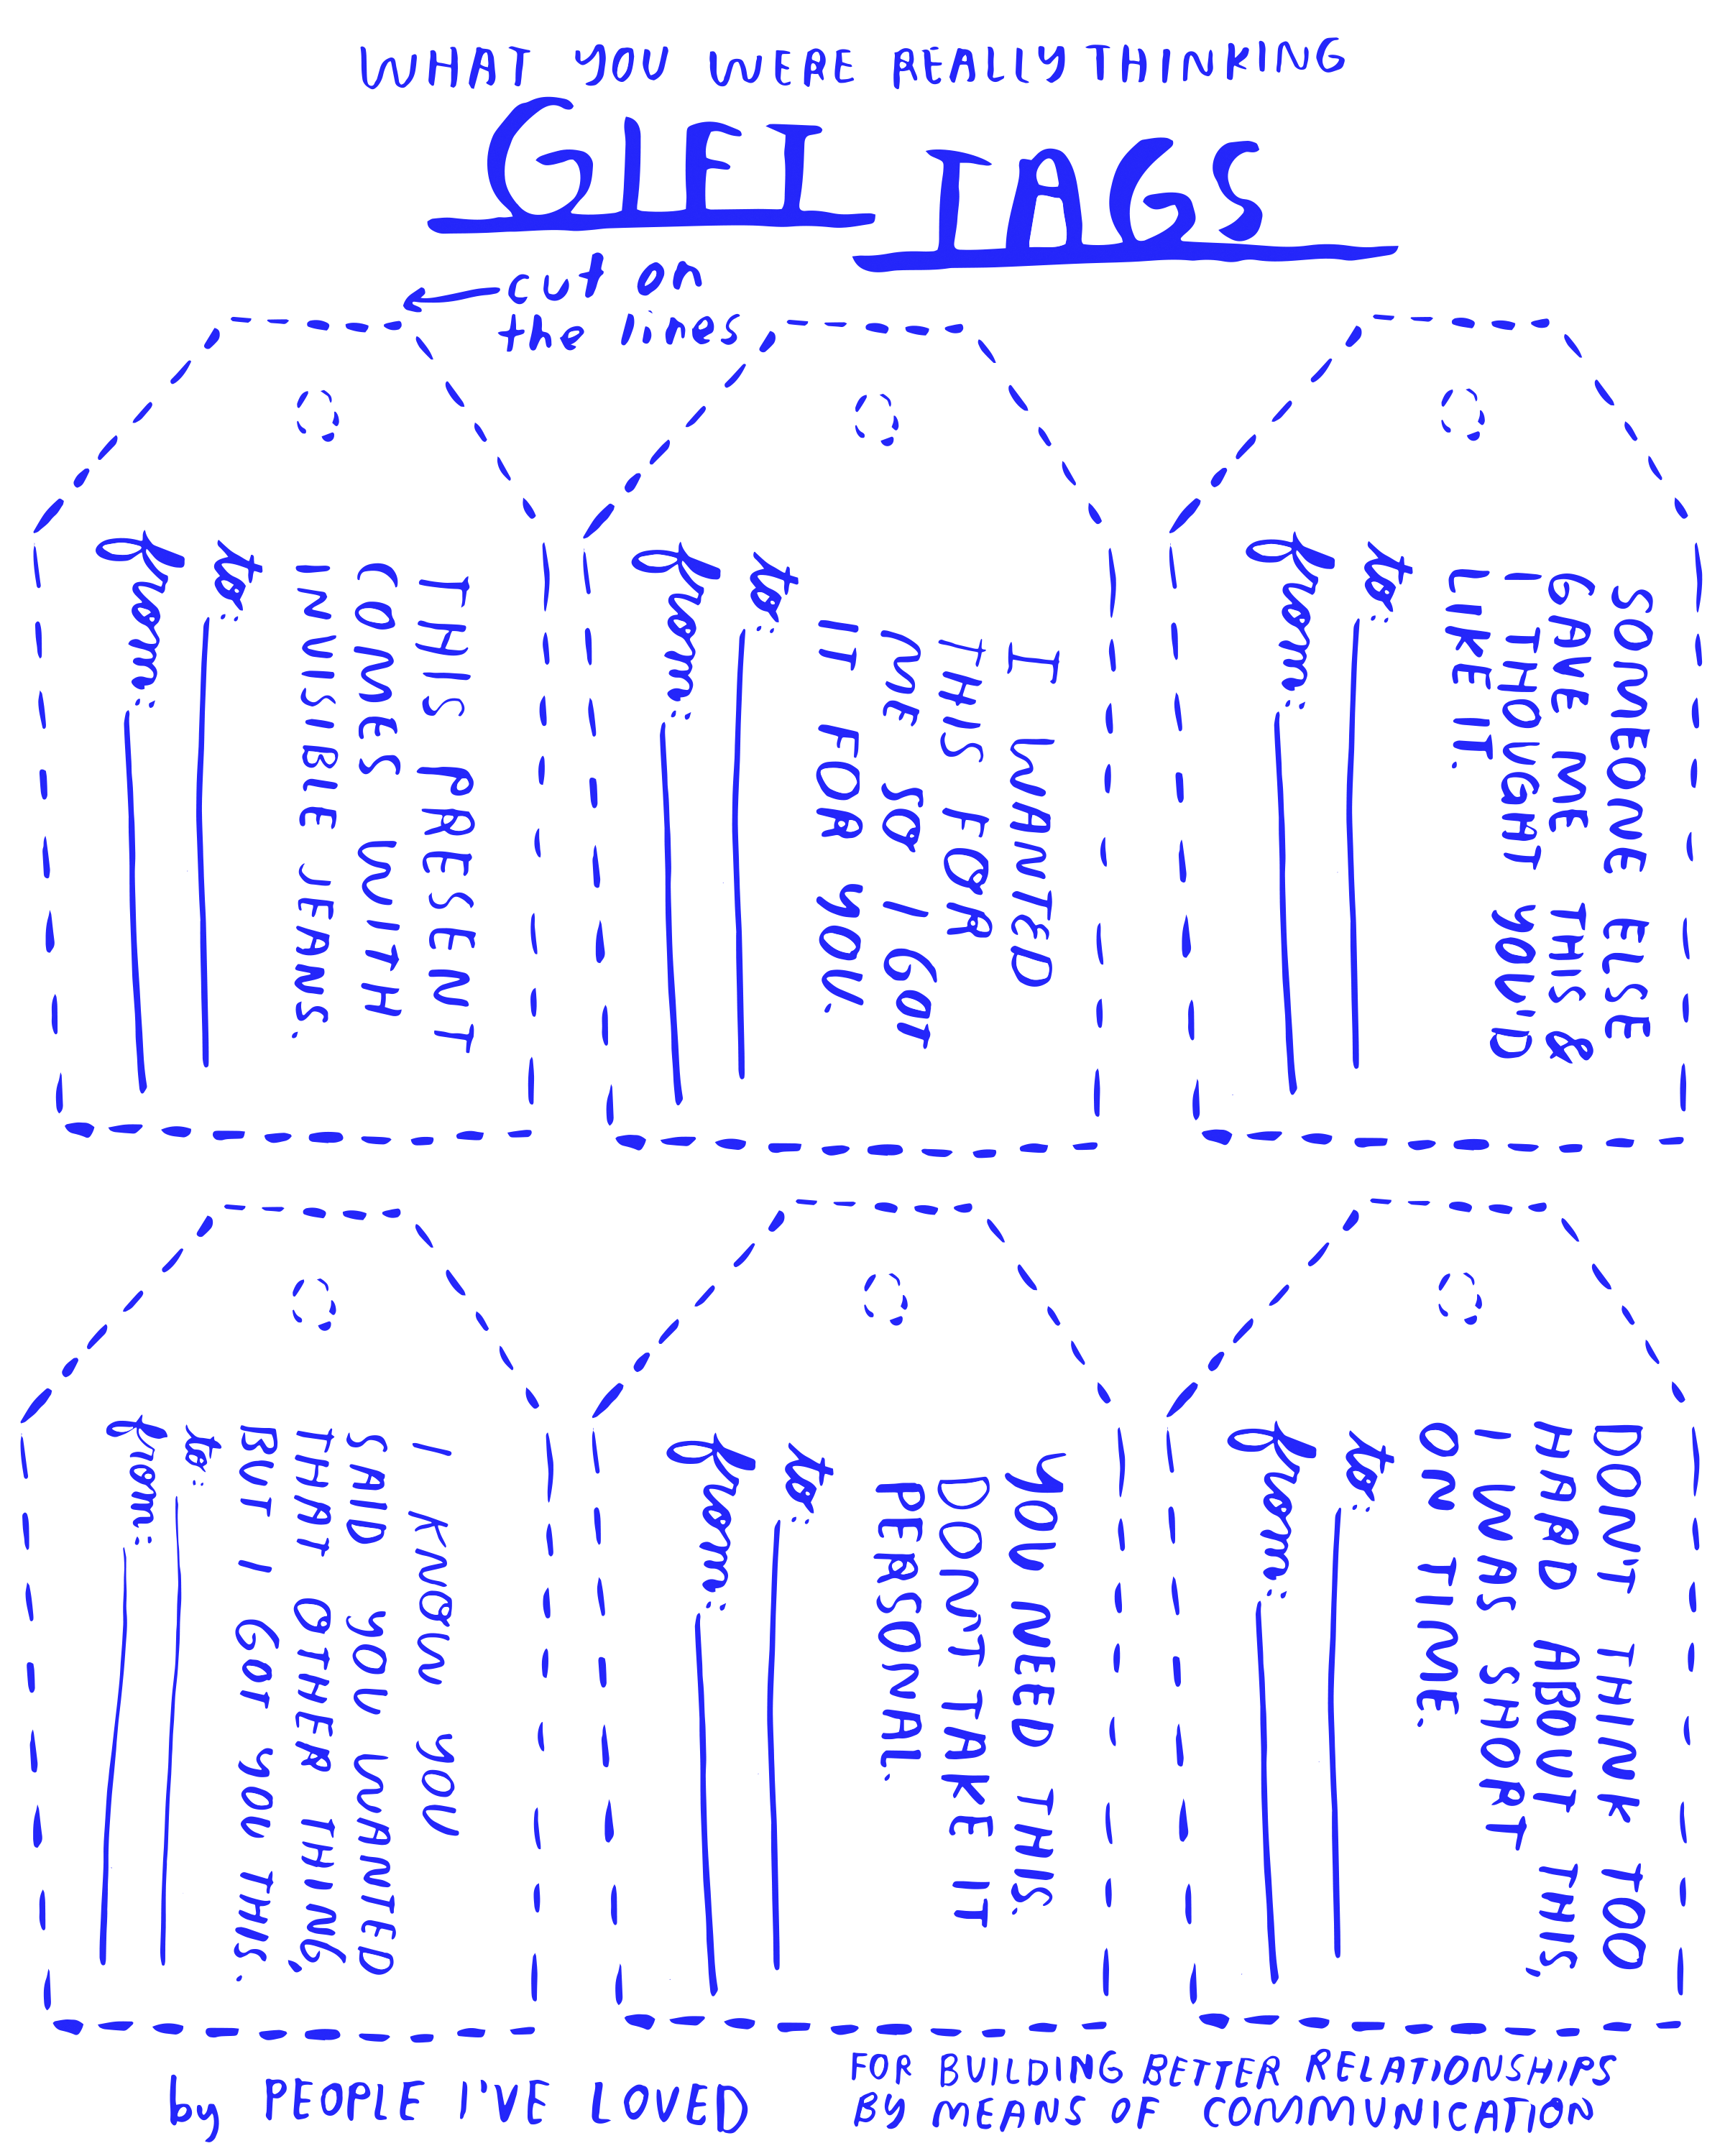 WHAT YOU WERE REALLY THINKING
GIFT TAGS
cut on
the lines
THIS PRESENT
COMES WITH
INVISIBLE JEANS.
to:
from:
I WANTED
THIS FOR
ME SO I GOT
IT FOR YOU.
to:
from:
SOMEONE ELSE
GAVE ME THIS &
I THOUGHT YOU'D
LIKE IT.
to:
from:
I KNOW YOU
SAID YOU WANTED
THAT OTHER THING,
BUT I GOT YOU THIS.
to:
from:
YOU NEED THIS.
DON'T TAKE IT
PERSONAL.
to:
from:
DON'T THINK TOO
HARD ABOUT THIS,
I WAS SHORT
ON TIME.
to:
from:
by PEOPLE I'VE LOVED
FOR BUILDING BETTER RELATIONSHIPS
BY MEANS OF COMMUNICATION